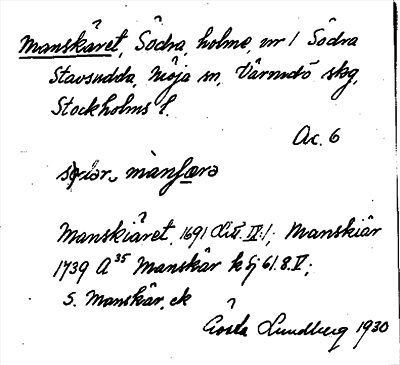 Manskäret, Södra, holme, nr 1 Södra
Stavsudda, Möja sn, Värmdö skg,
Stockholms l.
Ac. 6
mànʃærə
Manskiäret, 1691 (Litt. IX:1; Manskiär
1739 A 35 Manskär k sj 61.8.V;
S. Manskär, ek
Gösta Lundberg 1930